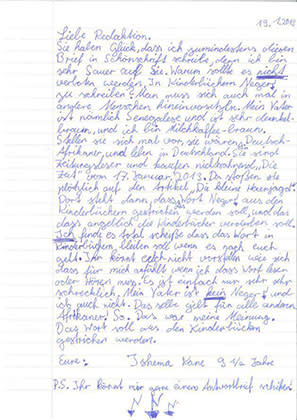 19.1.2013
Liebe Redaktion.
Sie haben Glück, dass ich zumindestens diesen
Brief in Schönschrift schreibe, denn ich bin
sehr Sauer auf Sie. Warum sollte es nicht
verboten werden, In Kinderbüchern „Neger“
zu schreiben? Man muss sich auch mal in
andere Menschen hineinversetzen. Mein Vater
ist nämlich Senegalese und ist sehr dunkel-
braun, und ich bin Milchkaffee-braun.
Stellen sie sich mal vor sie wären Deutsch-
Afrikaner, und leben in Deutschland. Sie sind
Zeitungsleser und kaufen nichtsahnend „Die
Zeit“ vom 17. Januar, 2013. Da stoßen sie
plötzlich auf den Artikel „Die kleine Hexenjagd“.
Dort steht dann, dass Wort Neger, aus den
Kinderbüchern gestrichen werden soll, und das
dass angeblich die Kinderbücher verunstalten soll.
Ich finde es total scheiße dass das Wort in
Kinderbüchern, bleiben soll wenn es nach euch
geht. Ihr könnt euch nicht vorstellen wie sich
dass für mich anfühlt wenn ich dass Wort lesen
oder hören muss. Es ist einfach nur sehr, sehr
schrecklich. Mein Vater ist kein Neger, und
ich auch nicht. Das selbe gilt für alle anderen
Afrikaner. So. Das war meine Meinung.
Das Wort soll aus den Kinderbüchern
gestrichen werden.
Eure: Ishema Kane 9 ½ Jahre
P.S. Ihr könnt mir gerne einen Antwortbrief schicken.